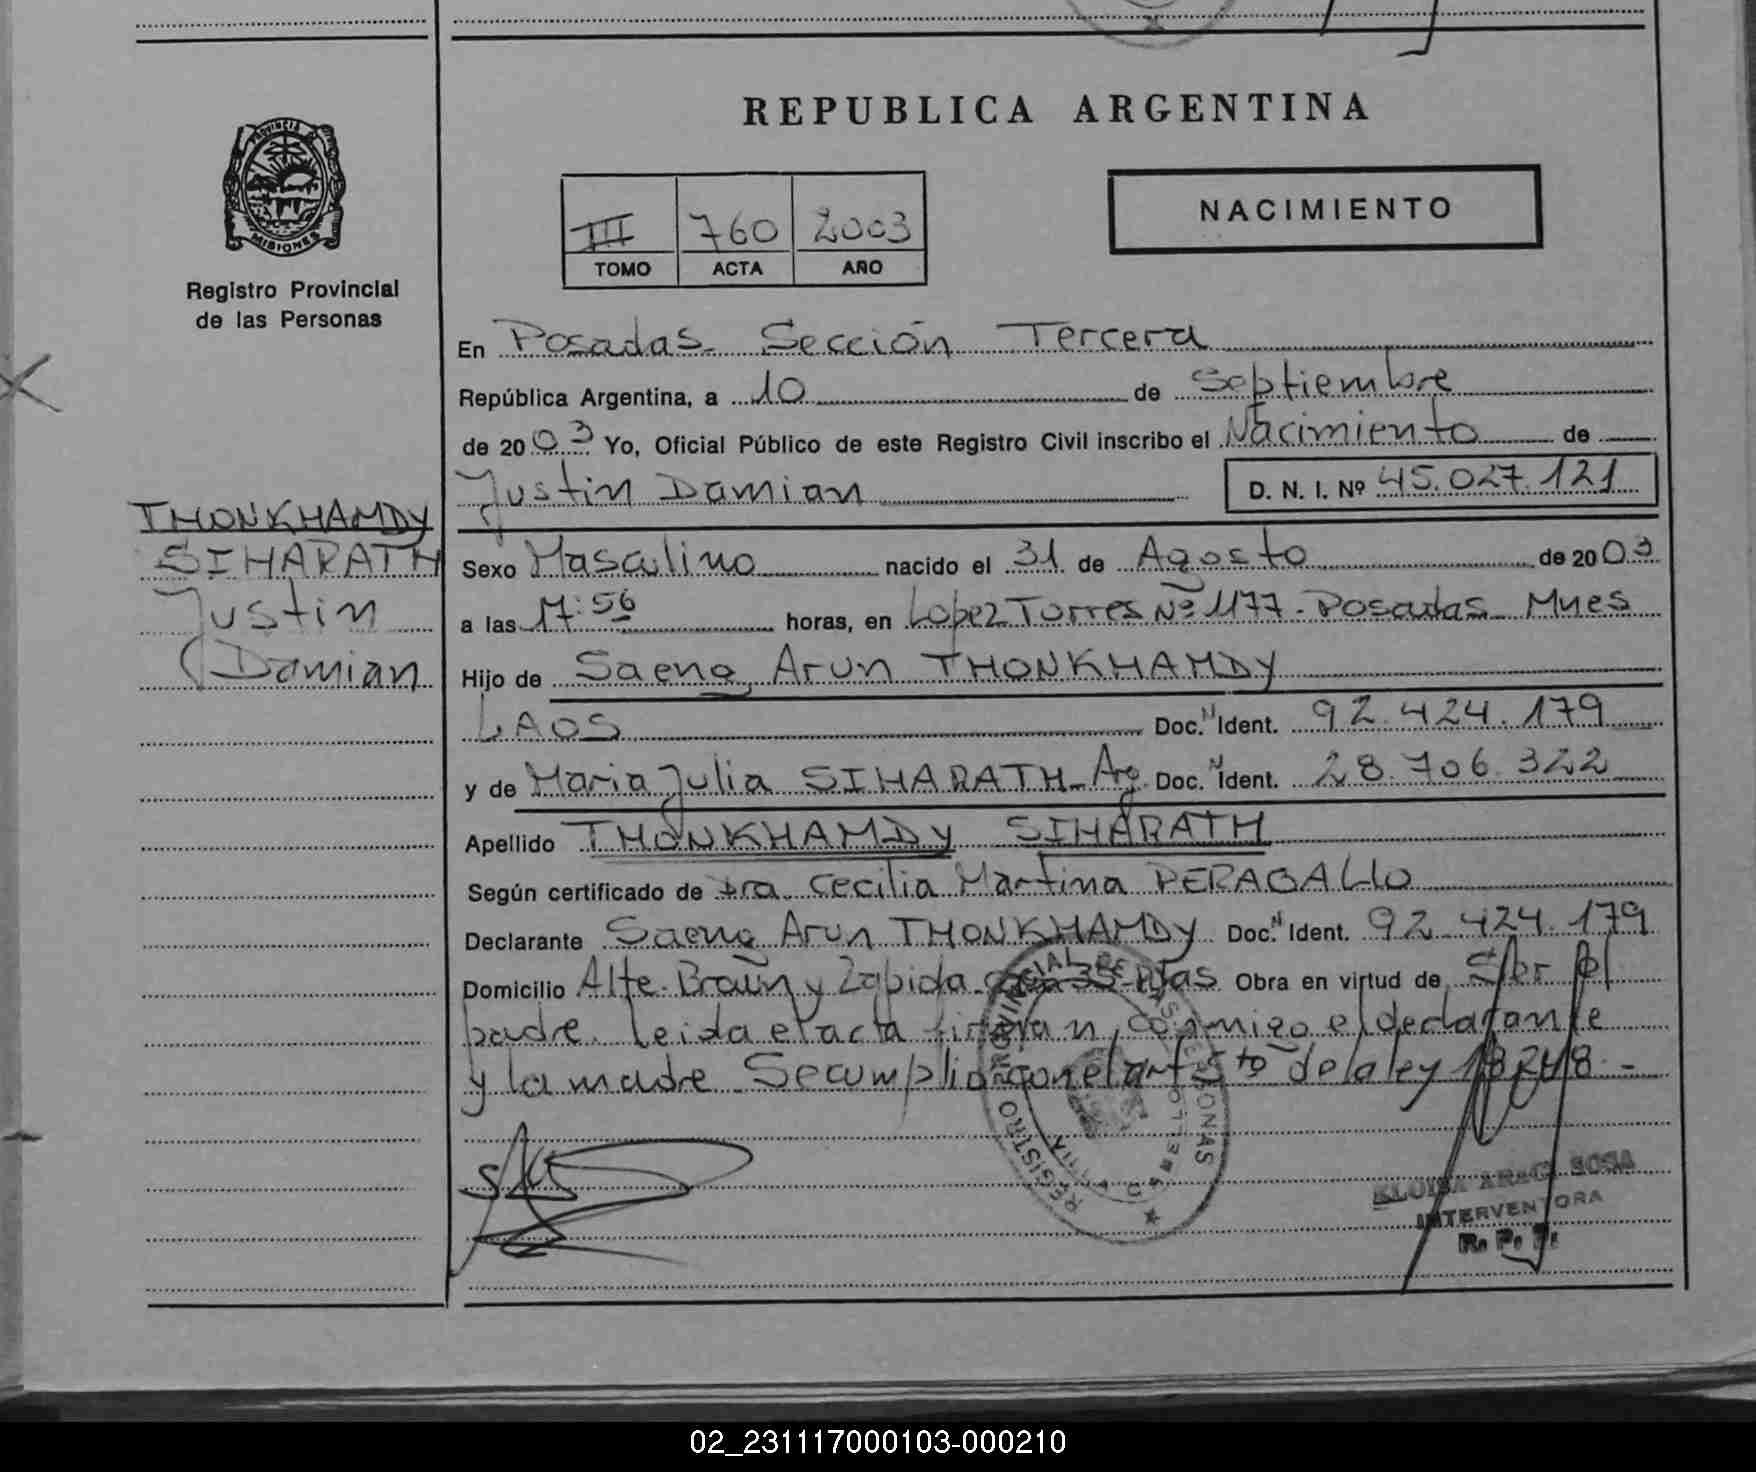 REPUBLICA ARGENTINA
PROVINCIA DE MISIONES
Registro Provincial
de las Personas
III 760 2003
TOMO ACTA AÑO
NACIMIENTO
En Posadas Sección Tercera
República Argentina, a 10 de Septiembre
de 2003 Yo, Oficial Público de este Registro Civil inscribo el Nacimiento de
Justin Damian D. N. I. Nº 45.027.121
THONKHAMDY
SIHARATH
Justin
Damian
Sexo Masculino nacido el 31 de Agosto de 2003
a las 17:56 horas, en Lopez Torres Nº 1177 - Posadas Mnes
Hijo de Saeng Arun THONKHAMDY
LAOS Doc. N Ident. 92.424.179
y de Maria Julia SIHARATH - Arg. Doc. N Ident. 28.706.322
Apellido THONKHAMDY SIHARATH
Según certificado de Dra. Cecilia Martina PERAGALLO
Declarante Saeng Arun THONKHAMDY Doc. N Ident. 92.424.179
Domicilio Alte. Brown y Zabida 35 Pdas Obra en virtud de S/br p/
padre. Leida el acta firman conmigo el declarante
y la madre Se cumplio con el art 5to de la ley 18248 -
REGISTRO PROVINCIAL DE LAS PERSONAS
INTERVENTORA
R. P. P.
02_231117000103-000210